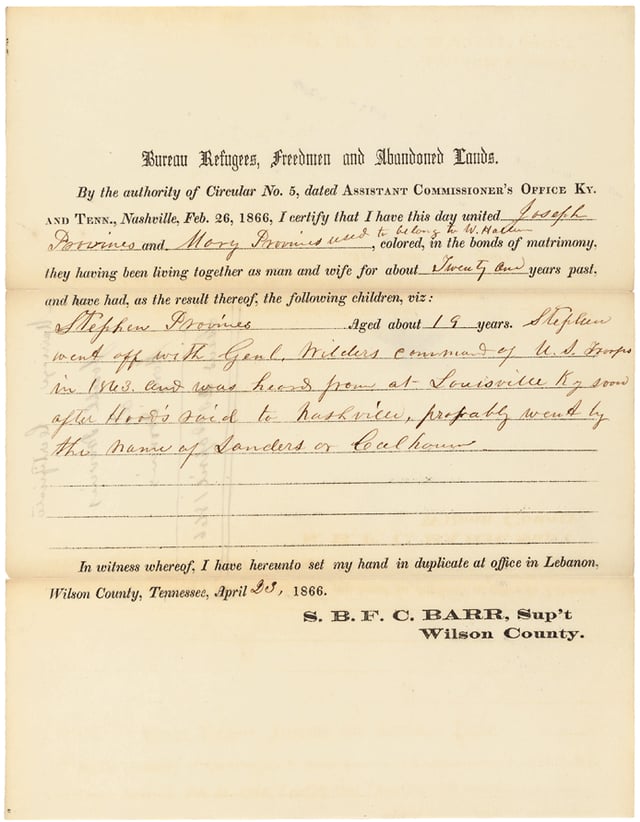 Bureau Refugees, Freedmen and Abandoned Lands.
By the authority of Circular No. 5, dated Assistant Commissioner's Office Ky.
and Tenn., Nashville, Feb. 26, 1866, I certify that I have this day united Joseph
to belong to W.
Provines and, Mary Provines used, colored, in the bonds of matrimony,
they having been living together as man and wife for about Twenty one years past,
and have had, as the result thereof, the following children, viz:
Stephen Provines Aged about 19 years. Stephen
went off with Genl. Wilders command of U. S. Troops
in 1863. and was heard from at Louisville Ky soon
after Hoods raid to Nashville, probably went by
the name of Sanders or Calhoun
In witness whereof, I have hereunto set my hand in duplicate at office in Lebanon,
Wilson County, Tennessee, April 23, 1866.
S. B. F. C. BARR, Sup't
Wilson County.